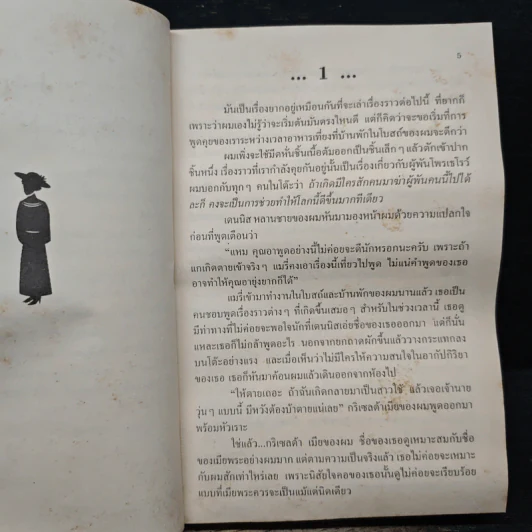 5
... 1 ...
มันเป็นเรื่องยากอยู่เหมือนกันที่จะเล่าเรื่องราวต่อไปนี้ ที่ยากก็
เพราะว่าผมเองไม่รู้ว่าจะเริ่มต้นมันตรงไหนดี แต่ก็คิดว่าจะขอเริ่มที่การ
พูดคุยของเราระหว่างเวลาอาหารเที่ยงที่บ้านพักในโบสถ์ของผมจะดีกว่า
ผมเพิ่งจะใช้มีดหั่นชิ้นเนื้อต้มออกเป็นชิ้นเล็กๆ แล้วตักเข้าปาก
ชิ้นหนึ่ง เรื่องราวที่เรากำลังคุยกันอยู่นั้นเป็นเรื่องเกี่ยวกับผู้พันโพรเธโรว์
ผมบอกกับทุกๆ คนในโต๊ะว่า ถ้าเกิดมีใครสักคนมาฆ่าผู้พันคนนี้ไปได้
ละก็ คงจะเป็นการช่วยทำให้โลกนี้ดีขึ้นมากทีเดียว
เดนนิส หลานชายของผมหันมามองหน้าผมด้วยความแปลกใจ
ก่อนที่พูดเตือนว่า
“แหม คุณอาพูดอย่างนี้ไม่ค่อยจะดีนักหรอกนะครับ เพราะถ้า
แกเกิดตายเข้าจริงๆ แมรี่คงเอาเรื่องนี้เที่ยวไปพูด ไม่แน่คำพูดของเธอ
อาจทำให้คุณอายุ่งยากก็ได้”
แมรี่เข้ามาทำงานในโบสถ์และบ้านพักของผมนานแล้ว เธอเป็น
คนชอบพูดเรื่องราวต่างๆ ที่เกิดขึ้นเสมอๆ สำหรับในช่วงเวลานี้ เธอดู
มีท่าทางที่ไม่ค่อยจะพอใจนักที่เดนนิสเอ่ยชื่อของเธอออกมา แต่ก็นั่น
แหละเธอก็ไม่กล้าพูดอะไร นอกจากยกถาดผักขึ้นแล้ววางกระแทกลง
บนโต๊ะอย่างแรง และเมื่อเห็นว่าไม่มีใครให้ความสนใจในอากัปกิริยา
ของเธอ เธอก็หันมาค้อนผมแล้วเดินออกจากห้องไป
“ให้ตายเถอะ ถ้าฉันเกิดกลายมาเป็นสาวใช้ แล้วเจอเจ้านาย
วุ่นๆ แบบนี้ มีหวังต้องบ้าตายแน่เลย” กริเซลด้าเมียของผมพูดออกมา
พร้อมหัวเราะ
ใช่แล้ว...กริเซลด้า เมียของผม ชื่อของเธอดูเหมาะสมกับชื่อ
ของเมียพระอย่างผมมาก แต่ตามความเป็นจริงแล้ว เธอไม่ค่อยจะเหมาะ
กับผมสักเท่าไหร่เลย เพราะนิสัยใจคอของเธอนั้นดูไม่ค่อยจะเรียบร้อย
แบบที่เมียพระควรจะเป็นแม้แต่นิดเดียว